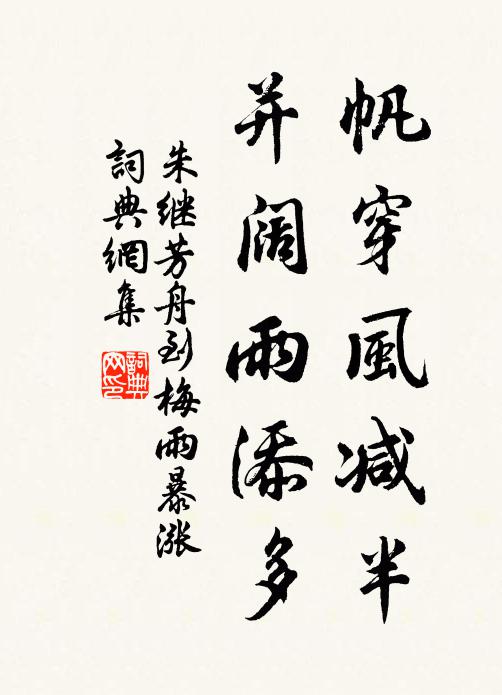 帆穿風减半
并阔雨添多
朱继芳舟到梅雨暴涨
詞典網集
詞典网印